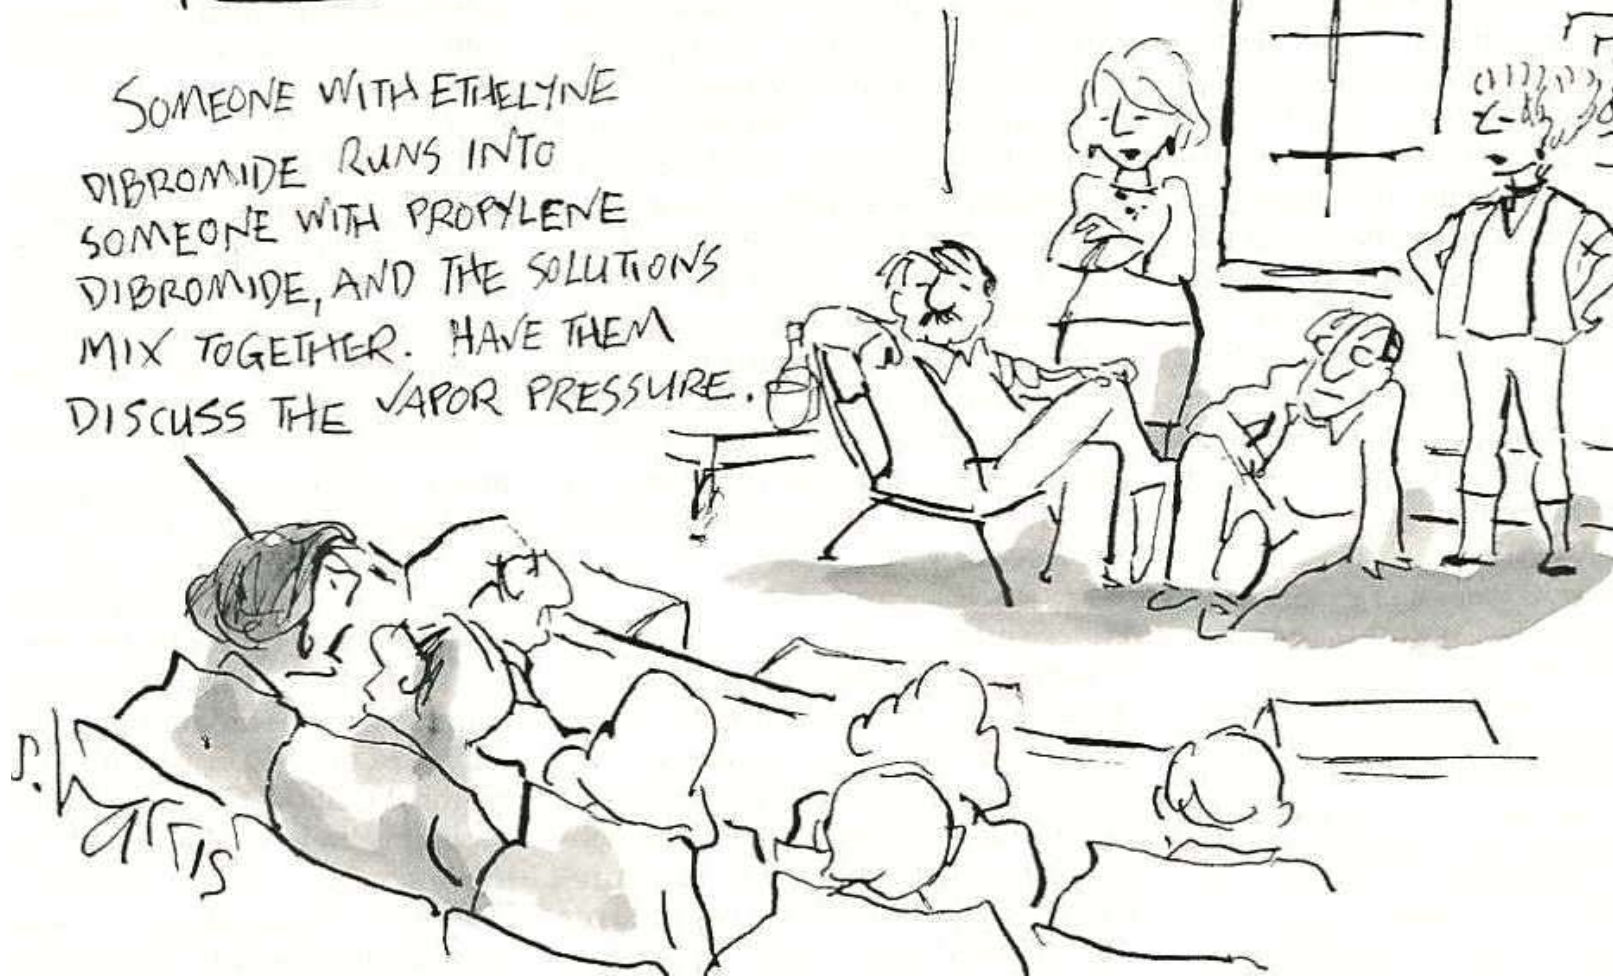 SOMEONE WITH ETHELYNE
DIBROMIDE RUNS INTO
SOMEONE WITH PROPYLENE
DIBROMIDE, AND THE SOLUTIONS
MIX TOGETHER. HAVE THEM
DISCUSS THE VAPOR PRESSURE.
S. Harris